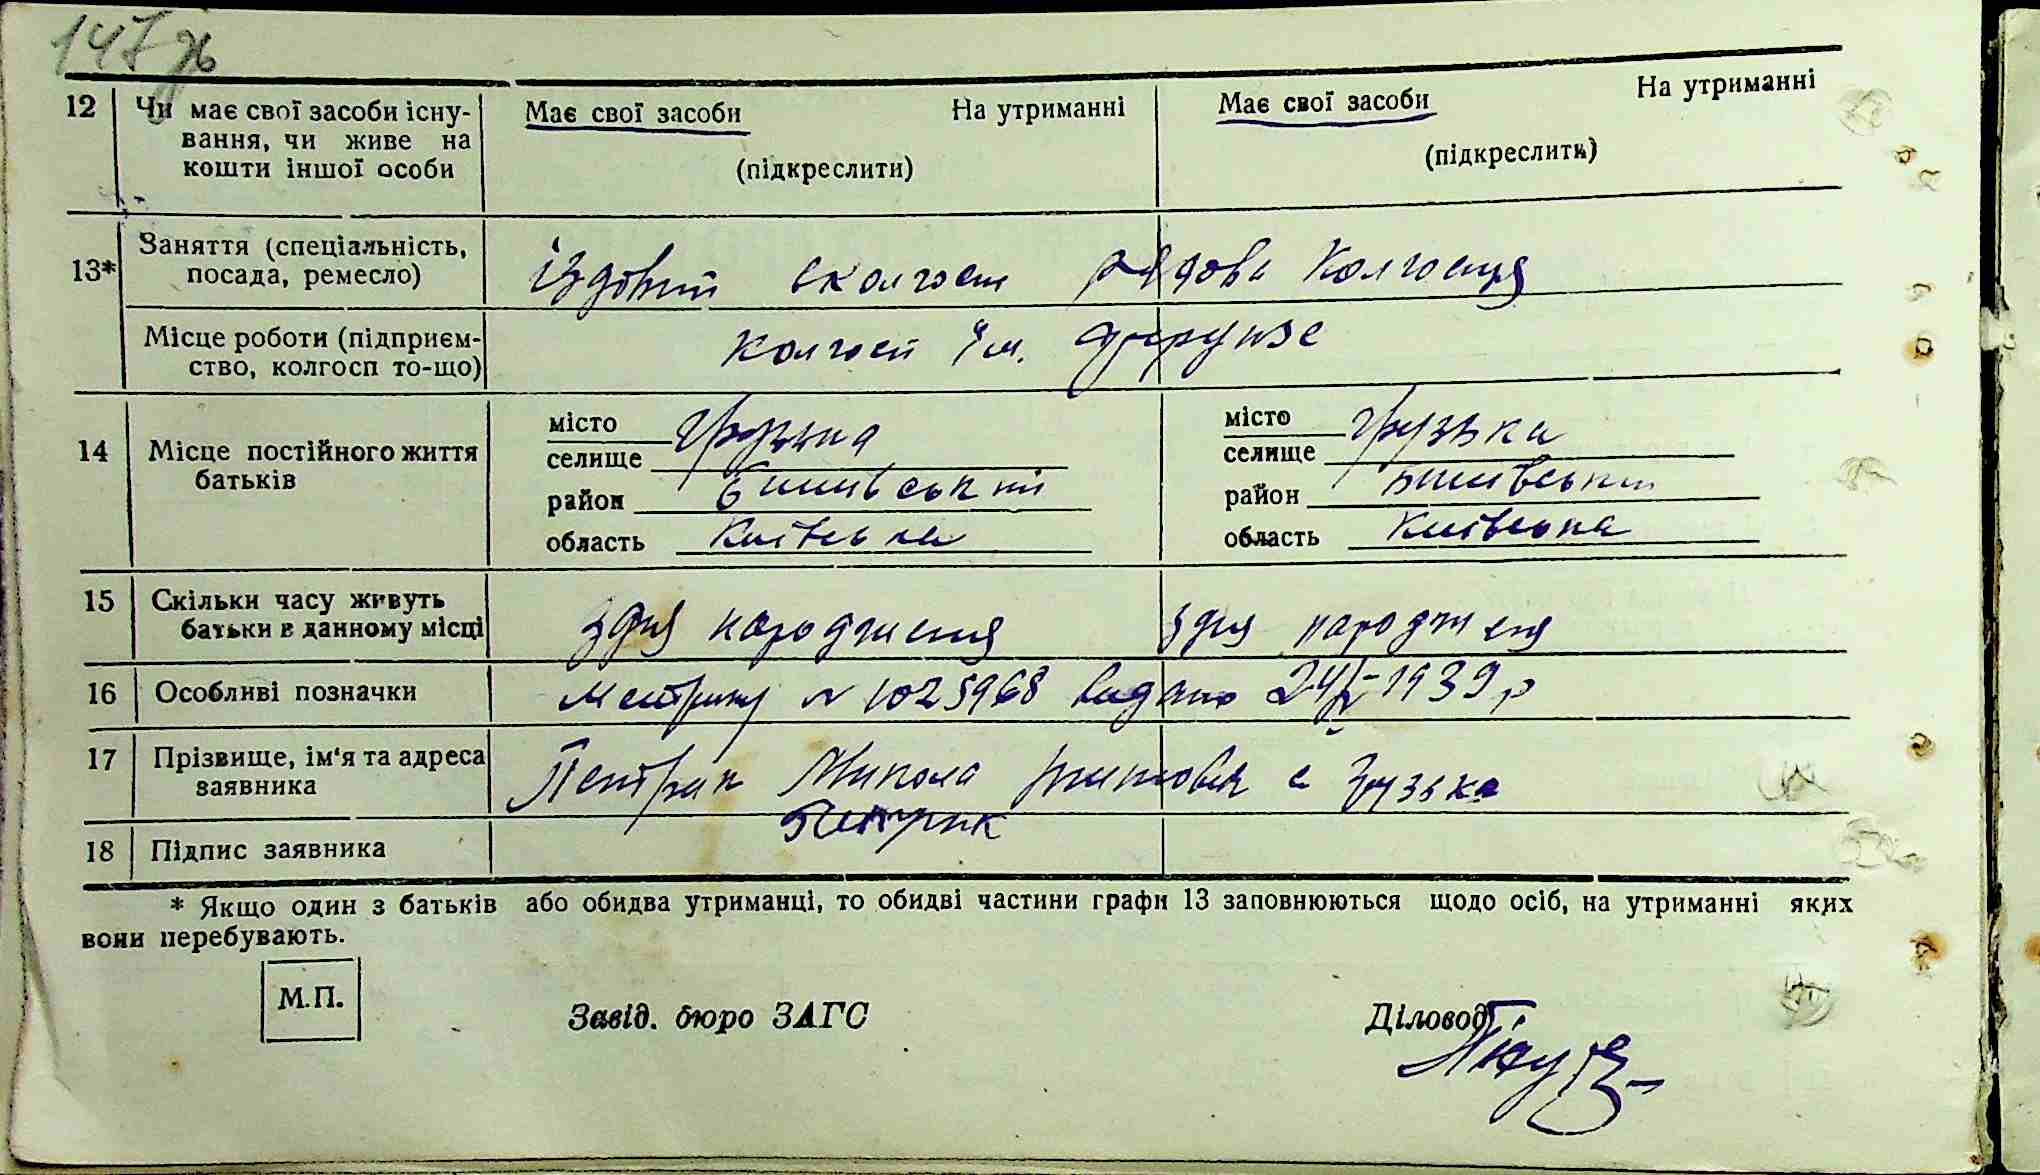 147 зв
12 Чи має свої засоби існу- Має свої засоби На утриманні Має свої засоби На утриманні
вання, чи живе на
кошти іншої особи (підкреслити) (підкреслити)
13* Заняття (спеціальність,
посада, ремесло) їздовий в колгоспі рядова колгоспця
Місце роботи (підприєм- колгосп ім. Фрунзе
ство, колгосп то-що)
14 Місце постійного життя місто Грузька місто Грузька
батьків селище селище
район Бишівський район Бишівський
область Київська область Київська
15 Скільки часу живуть
батьки в данному місці з дня народження з дня народження
16 Особливі позначки метрику № 1025968 видано 24/V-1939 р
17 Прізвище, ім'я та адреса
заявника Петрик Микола с Грузька
Петрик
18 Підпис заявника
* Якщо один з батьків або обидва утриманці, то обидві частини графи 13 заповнюються щодо осіб, на утриманні яких
вони перебувають.
М.П.
Завід. бюро ЗАГС Діловод